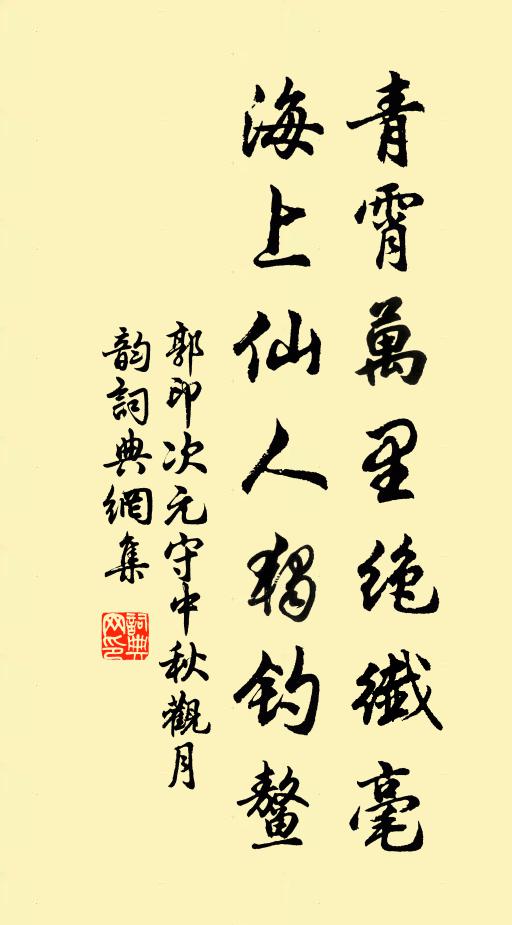 青霄萬里絶纖毫
海上仙人獨釣鰲
郭印次元守中秋觀月
韵詞典網集
詞典
网印